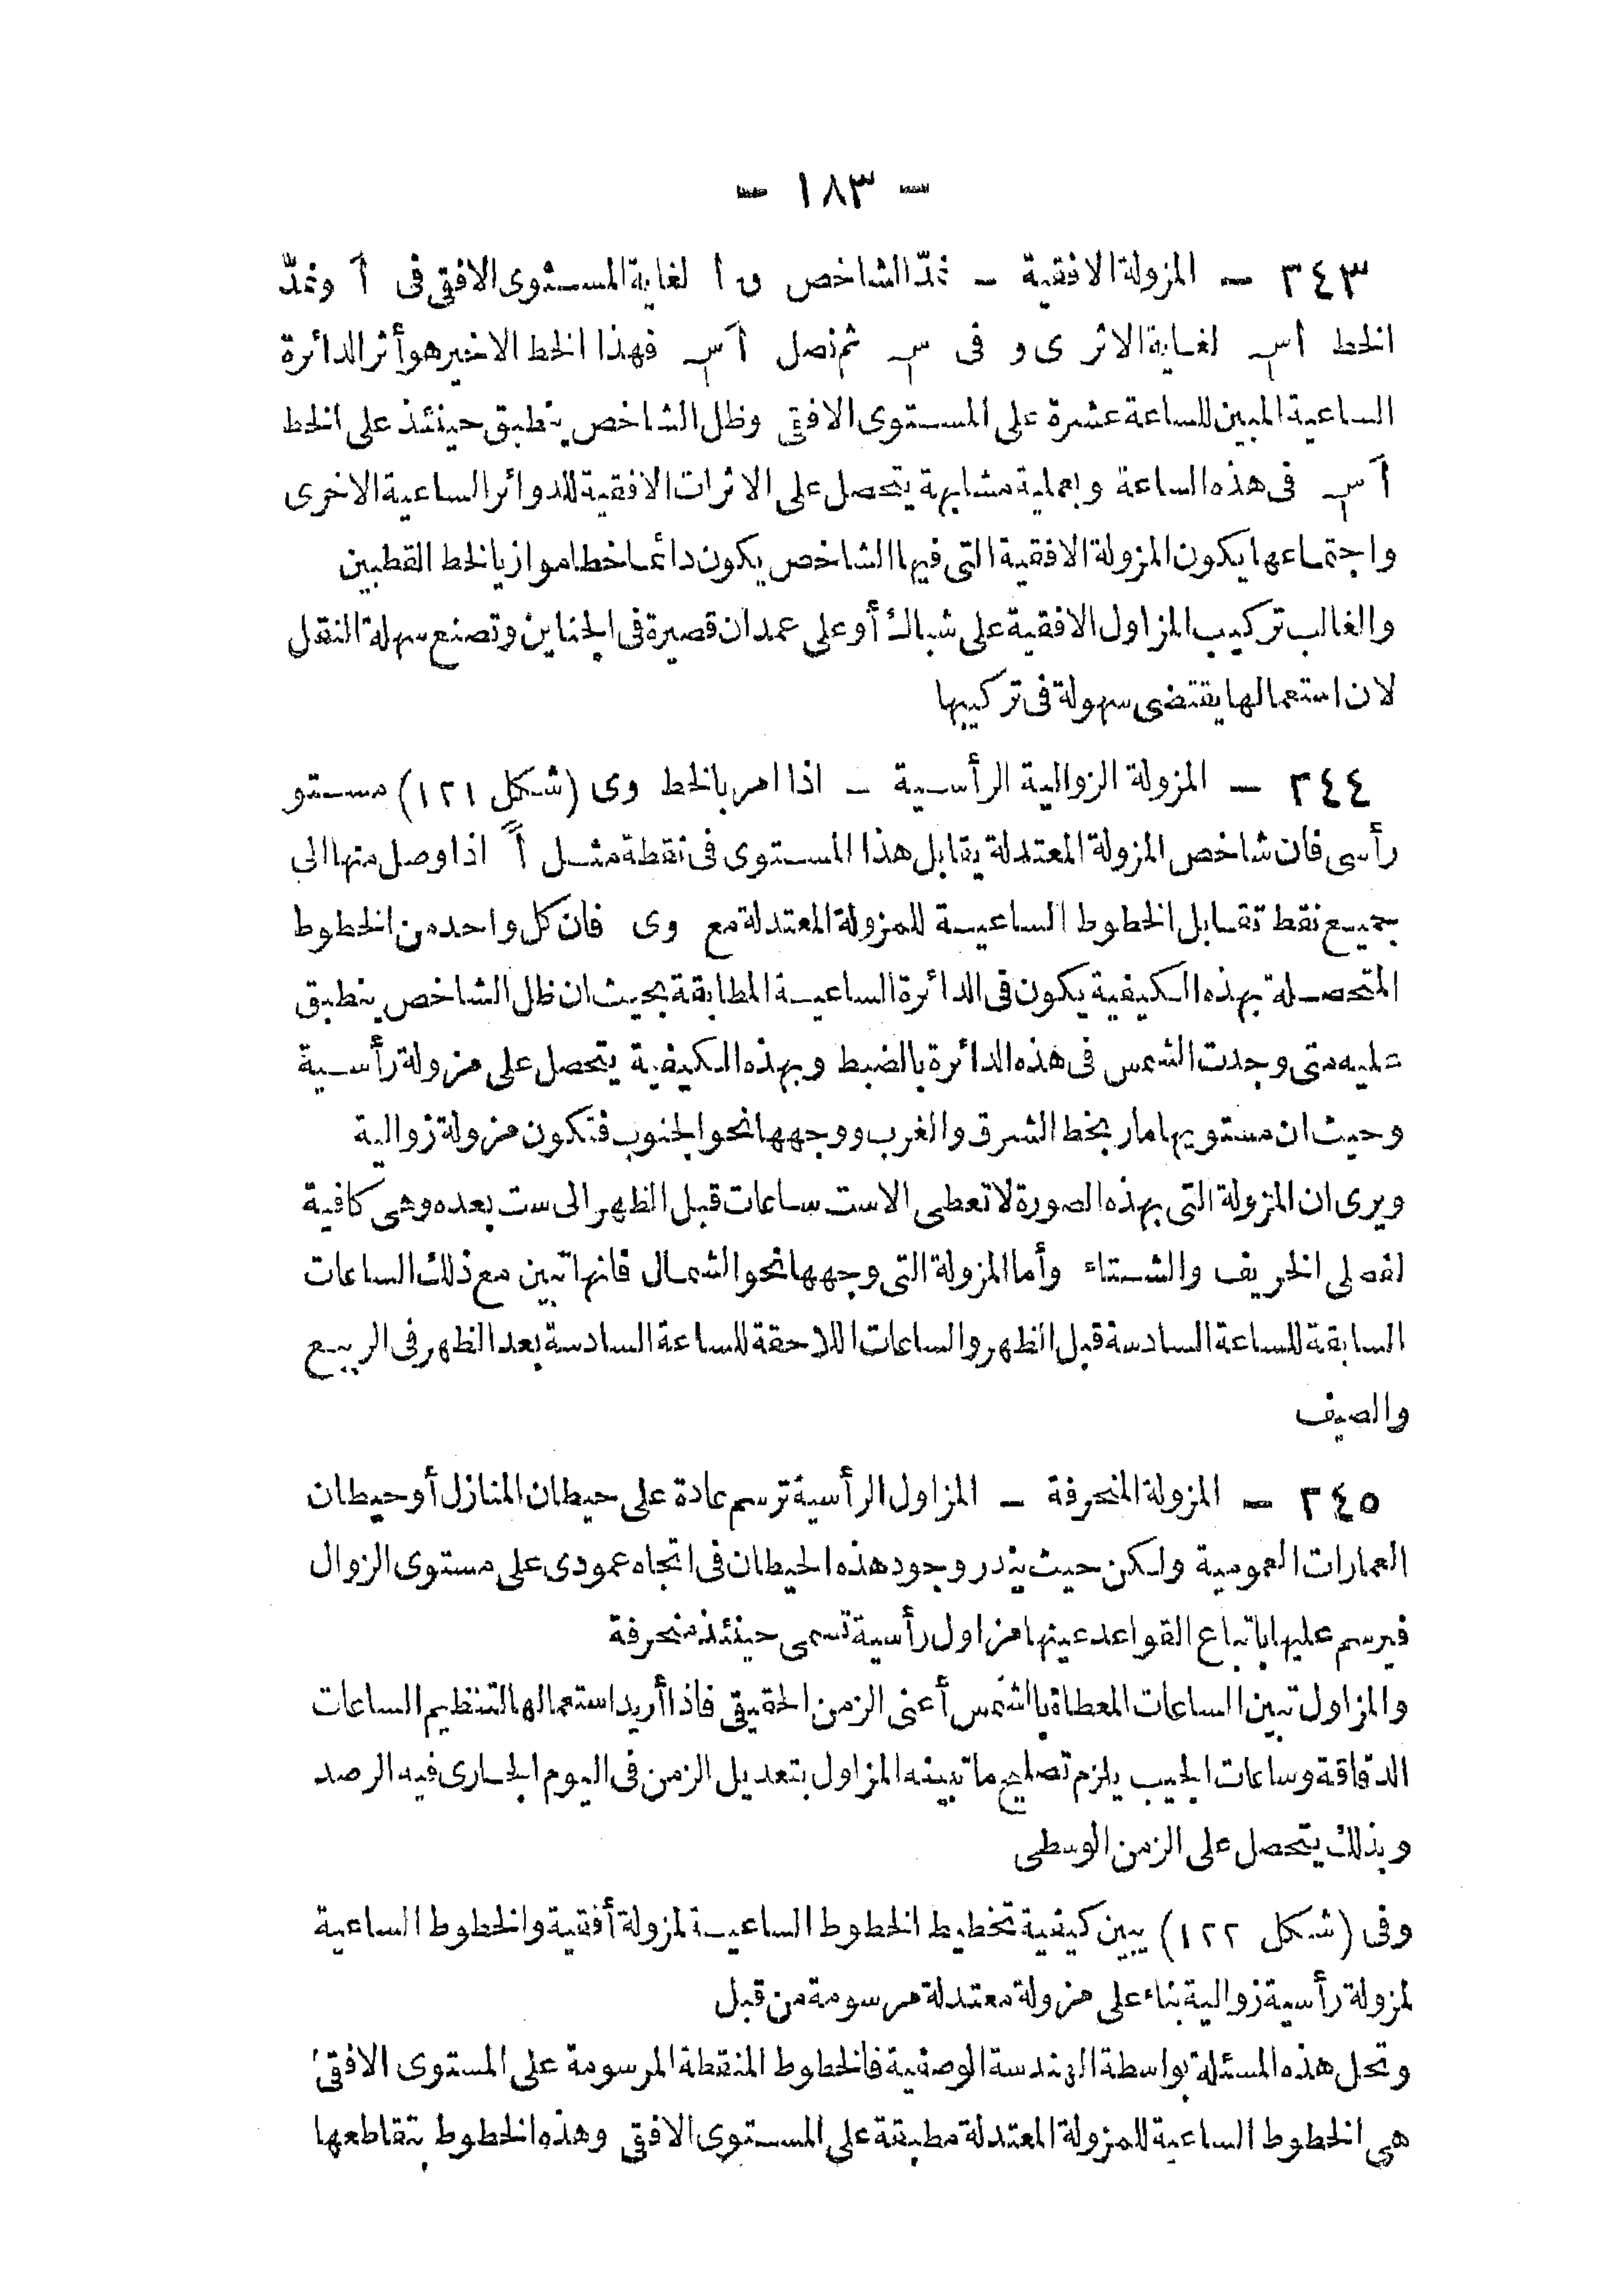 - ١٨٣ -
٣٤٣ - المزولة الافقية - نمدّ الشاخص ن ا لغاية المستوى الافقى فى آ ونمدّ
الخط اس لغاية الاثر ى و فى س ثم نصل آس فهذا الخط الاخير هو أثر الدائرة
الساعية المبين للساعة عشرة على المستوى الافقى وظل الشاخص ينطبق حينئذ على الخط
آس فى هذه الساعة وبعملية مشابهة يتحصل على الاثرات الافقية للدوائر الساعية الاخرى
واجتماعها يكون المزولة الافقية التى فيها الشاخص يكون دائما خطا موازيا لخط القطبين
والغالب تركيب المزاول الافقية على شباك أو على عمدان قصيرة فى الجناين وتصنع سهلة النقل
لان استعمالها يقتضى سهولة فى تركيبها
٣٤٤ - المزولة الزوالية الرأسية - اذا امر بالخط وى (شكل ١٢١) مستو
رأسى فان شاخص المزولة المعتدلة يقابل هذا المستوى فى نقطة مثل آً اذا وصل منها الى
جميع نقط تقابل الخطوط الساعية للمزولة المعتدلة مع وى فان كل واحد من الخطوط
المتحصلة بهذه الكيفية يكون فى الدائرة الساعية المطابقة بحيث ان ظل الشاخص ينطبق
عليه متى وجدت الشمس فى هذه الدائرة بالضبط وبهذه الكيفية يتحصل على مزولة رأسية
وحيث ان مستويها مار بخط الشرق والغرب ووجهها نحو الجنوب فتكون مزولة زوالية
ويرى ان المزولة التى بهذه الصورة لا تعطى الا ست ساعات قبل الظهر الى ست بعده وهى كافية
لفصلى الخريف والشتاء وأما المزولة التى وجهها نحو الشمال فانها تبين مع ذلك الساعات
السابقة للساعة السادسة قبل الظهر والساعات اللاحقة للساعة السادسة بعد الظهر فى الربيع
والصيف
٣٤٥ - المزولة المنحرفة - المزاول الرأسية ترسم عادة على حيطان المنازل أو حيطان
العمارات العمومية ولكن حيث يندر وجود هذه الحيطان فى اتجاه عمودى على مستوى الزوال
فيرسم عليها باتباع القواعد عينها مزاول رأسية تسمى حينئذ منحرفة
والمزاول تبين الساعات المعطاة بالشمس أعنى الزمن الحقيقى فاذا أريد استعمالها لتنظيم الساعات
الدقاقة وساعات الجيب يلزم تصليح ما تبينه المزاول بتعديل الزمن فى اليوم الجارى فيه الرصد
وبذلك يتحصل على الزمن الوسطى
وفى (شكل ١٢٢) يبين كيفية تخطيط الخطوط الساعية لمزولة أفقية والخطوط الساعية
لمزولة رأسية زوالية بناء على مزولة معتدلة مرسومة من قبل
وتحل هذه المسئلة بواسطة الهندسة الوصفية فالخطوط المنقطة المرسومة على المستوى الافقى
هى الخطوط الساعية للمزولة المعتدلة مطبقة على المستوى الافقى وهذه الخطوط بتقاطعها